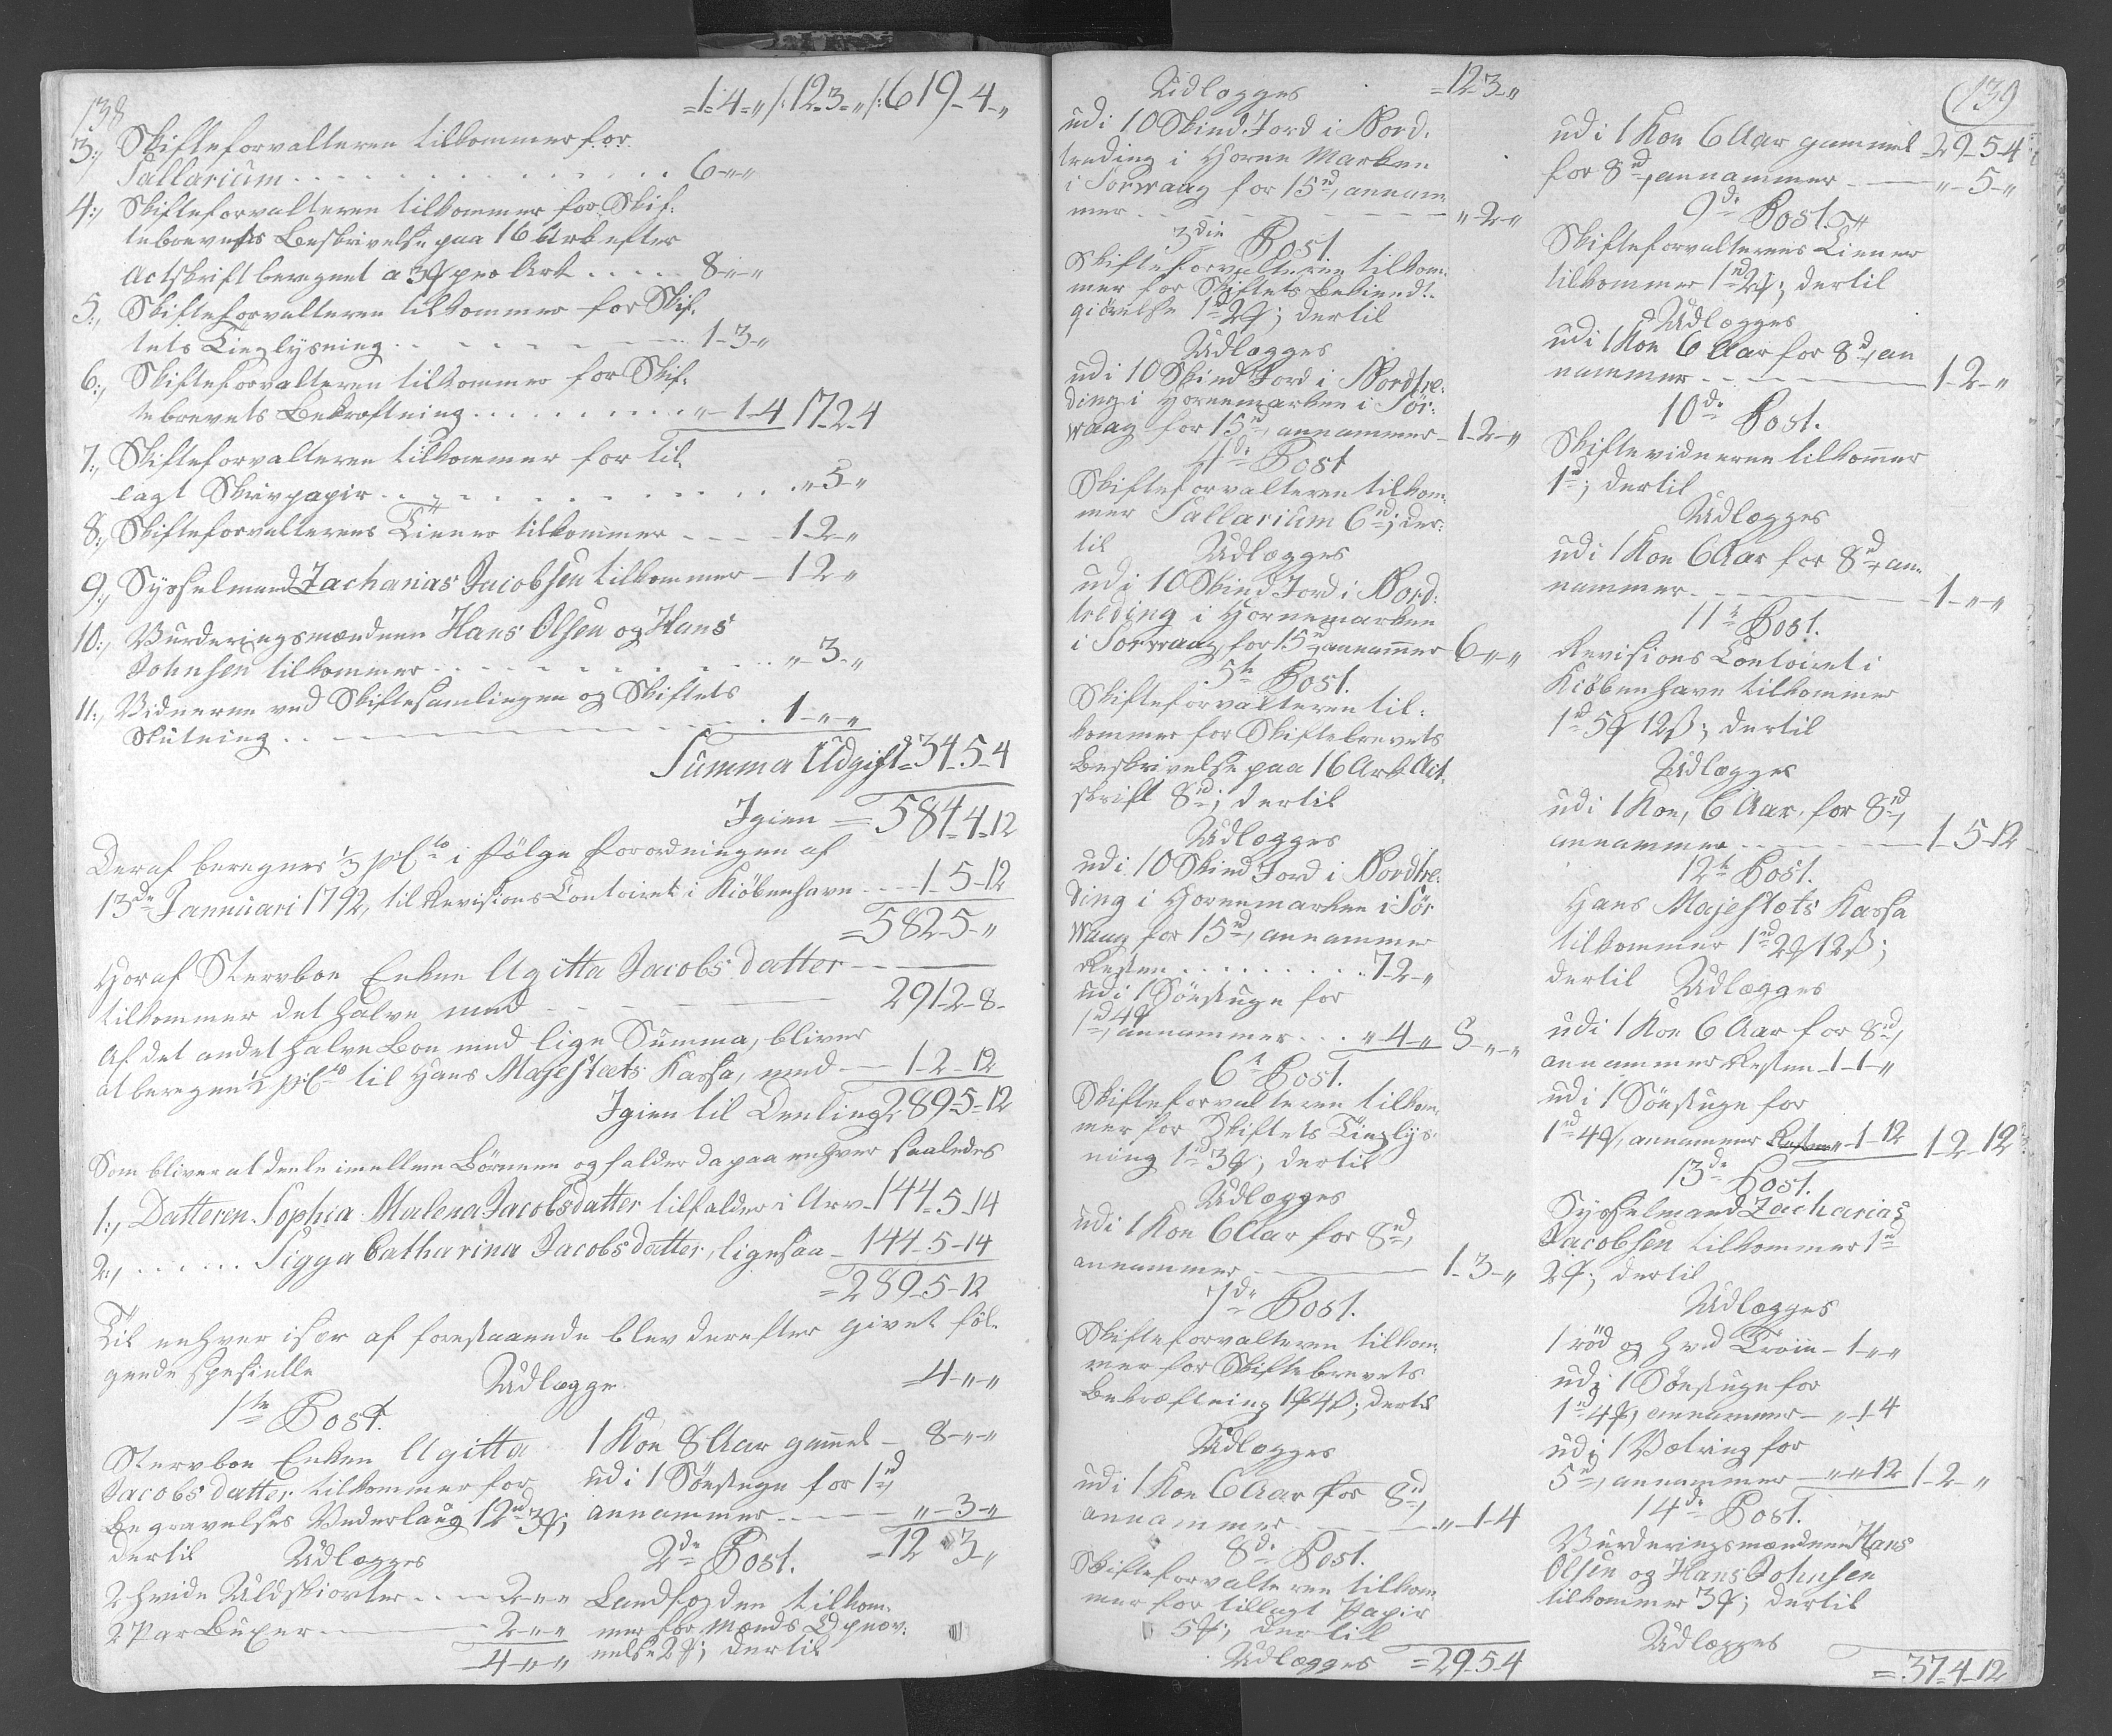 138
=1-4-" /: 12-3-" /: 619-4-"
3:, Skifteforvalteren tilkommer for
Sallarium . . . . . 6-"-"
4:, Skifteforvalteren tilkommer for Skif-
tebrevets Beskrivelse paa 16 Ark efter
Actskrift beregnet a 3 ꝑ pro Ark . . . . . 8-"-"
5:, Skifteforvalteren tilkommer for Skif-
tets Tinglysning . . . . . 1-3-"
6:, Skifteforvalteren tilkommer for Skif-
tebrevets Bekræftning . . . . . "-1-4 17-2-4
7:, Skifteforvalteren tilkommer for til-
lagt Skrivpapir . . . . . "-5-"
8:, Skifteforvalterens Tiener tilkommer - - - 1-2-"
9:, Sysselmand Zacharias Jacobsen tilkommer - 1-2-"
10:, Vurderingsmændene Hans Olsen og Hans
Johnsen tilkommer . . . . . "-3-"
11:, Vidnerne ved Skiftesamlingen og Skiftets
Slutning . . . . . 1-"-"
Summa Udgift = 34-5-4
Igien = 584-4-12
Deraf beregnes 1/3 pCto i følge Forordningen af
13de Januari 1792, til Revisions Contoiret i Kiøbenhavn - - - 1-5-12
= 582-5-"
Horaf Stervboe Enken Agitta Jacobsdatter
tilkommer det halve med - - 291-2-8-
Af det andet halve Boe med lige Summa, bliver
at beregne 1/2 pCto til Hans Majestæts Kassa, med - 1-2-12
Igien til Deeling 289-5-12
Som bliver at deele imellem Børnene og falder da paa enhver saaledes
1:, Datteren Sophia Malena Jacobsdatter tilfalder i Arv - 144-5-14
2:, . . . . . Sigga Catharina Jacobsdatter, ligesaa - 144-5-14
= 289-5-12
Til enhver især af forestaaende blev derefter givet føl-
gende specielle
Udlægge
1ste Post.
Stervboe Enken Agitta
Jacobsdatter tilkommer for
Begravelses Vederlaug 12 rd 3 ꝑ;
dertil
Udlægges
2 hvide Uldskiorter . . . . 2-"-"
2 Par Buxer - - - 2-"-"
4-"-"
=4-"-"
1 Koe 8 Aar gammel - 8-"-"
udi 1 Søestuge for 1 rd,
annammer - - - "-3-"
=12-3-"
2de Post.
Landfogden tilkom-
mer for Mænds Opnæv-
nelse 2 ꝑ; dertil
Udlægges =12-3-"
udi 10 Skind Jord i Nord-
treding i Horne Marken
i Sorwaag for 15 rd, annam-
mer - - - "-2-"
3die Post
Skifteforvalteren tilkom-
mer for Skiftets Bekiendt-
giørelse 1 rd 2 ꝑ; dertil
Udlægges
udi 10 Skind Jord i Nordtre-
ding i Hornemarken i Sør-
waag for 15 rd, annammer - 1-2-"
4de Post
Skifteforvalteren tilkom-
mer Sallarium 6 rd; der-
til
Udlægges
udi 10 Skind Jord i Nord-
treding i Hornemarken
i Sorwaag for 15 rd, annammer 6-"-"
5te Post.
Skifteforvalteren til-
kommer for Skiftebrevets
Beskrivelse paa 16 Ark Act-
skrift 8 rd; dertil
Udlægges
udi 10 Skind Jord i Nordtre-
ding i Hornemarken i Sør
Waag for 15 rd, annammer
Resten . . . . . 7-2-"
udi 1 Søestuge for
1 rd 4 ꝑ, annammer . . . "-4-" 8-"-"
6te Post.
Skifteforvalteren tilkom-
mer for Skiftets Tinglys-
ning 1 rd 3 ꝑ; dertil
Udlægges
udi 1 Koe 6 Aar for 8 rd,
annammer - - - 1-3-"
7de Post.
Skifteforvalteren tilkom-
mer for Skiftebrevets
Bekræftning 1 ꝑ 4 ß; dertil
Udlægges
udi 1 Koe 6 Aar for 8 rd,
annammer - - - "-1-4
8de Post.
Skifteforvalteren tilkom-
mer for tillagt Papir
5 ꝑ; dertil
Udlægges =29-5-4
139
udi 1 Koe 6 Aar gammel =29-5-4
for 8 rd, annammer - - - "-5-"
9de Post.
Skifteforvalterens Tiener
tilkommer 1 rd 2 ꝑ; dertil
Udlægges
udi 1 Koe 6 Aar for 8 rd, an
nammer - - - 1-2-"
10de Post.
Skiftevidnerne tilkommer
1 rd; dertil
Udlægges
udi 1 Koe 6 Aar for 8 rd, an-
nammer - - - 1-"-"
11te Post.
Revisions Contoiret i
Kiøbenhavn tilkommer
1 rd 5 ꝑ 12 ß; dertil
Udlægges
udi 1 Koe, 6 Aar, for 8 rd,
annammer - - - 1-5-12
12te Post.
Hans Majestæts Kassa
tilkommer 1 rd 2 ꝑ 12 ß;
dertil Udlægges
udi 1 Koe 6 Aar for 8 rd,
annammer Resten - 1-1-"
udi 1 Søestuge for
1 rd 4 ꝑ, annammer Resten "-1-12 1-2-12
13de Post.
Sysselmand Zacharias
Jacobsen tilkommer 1 rd
2 ꝑ; dertil
Udlægges
1 rød og hvid Trøie - 1-"-"
udi 1 Søestuge for
1 rd 4 ꝑ, annammer - "-1-4
udi 1 Vætring for
5 rd, annammer - "-"-12 1-2-"
14de Post.
Vurderingsmændene Hans
Olsen og Hans Johnsen
tilkommer 3 ꝑ; dertil
Udlægges
=37-4-12